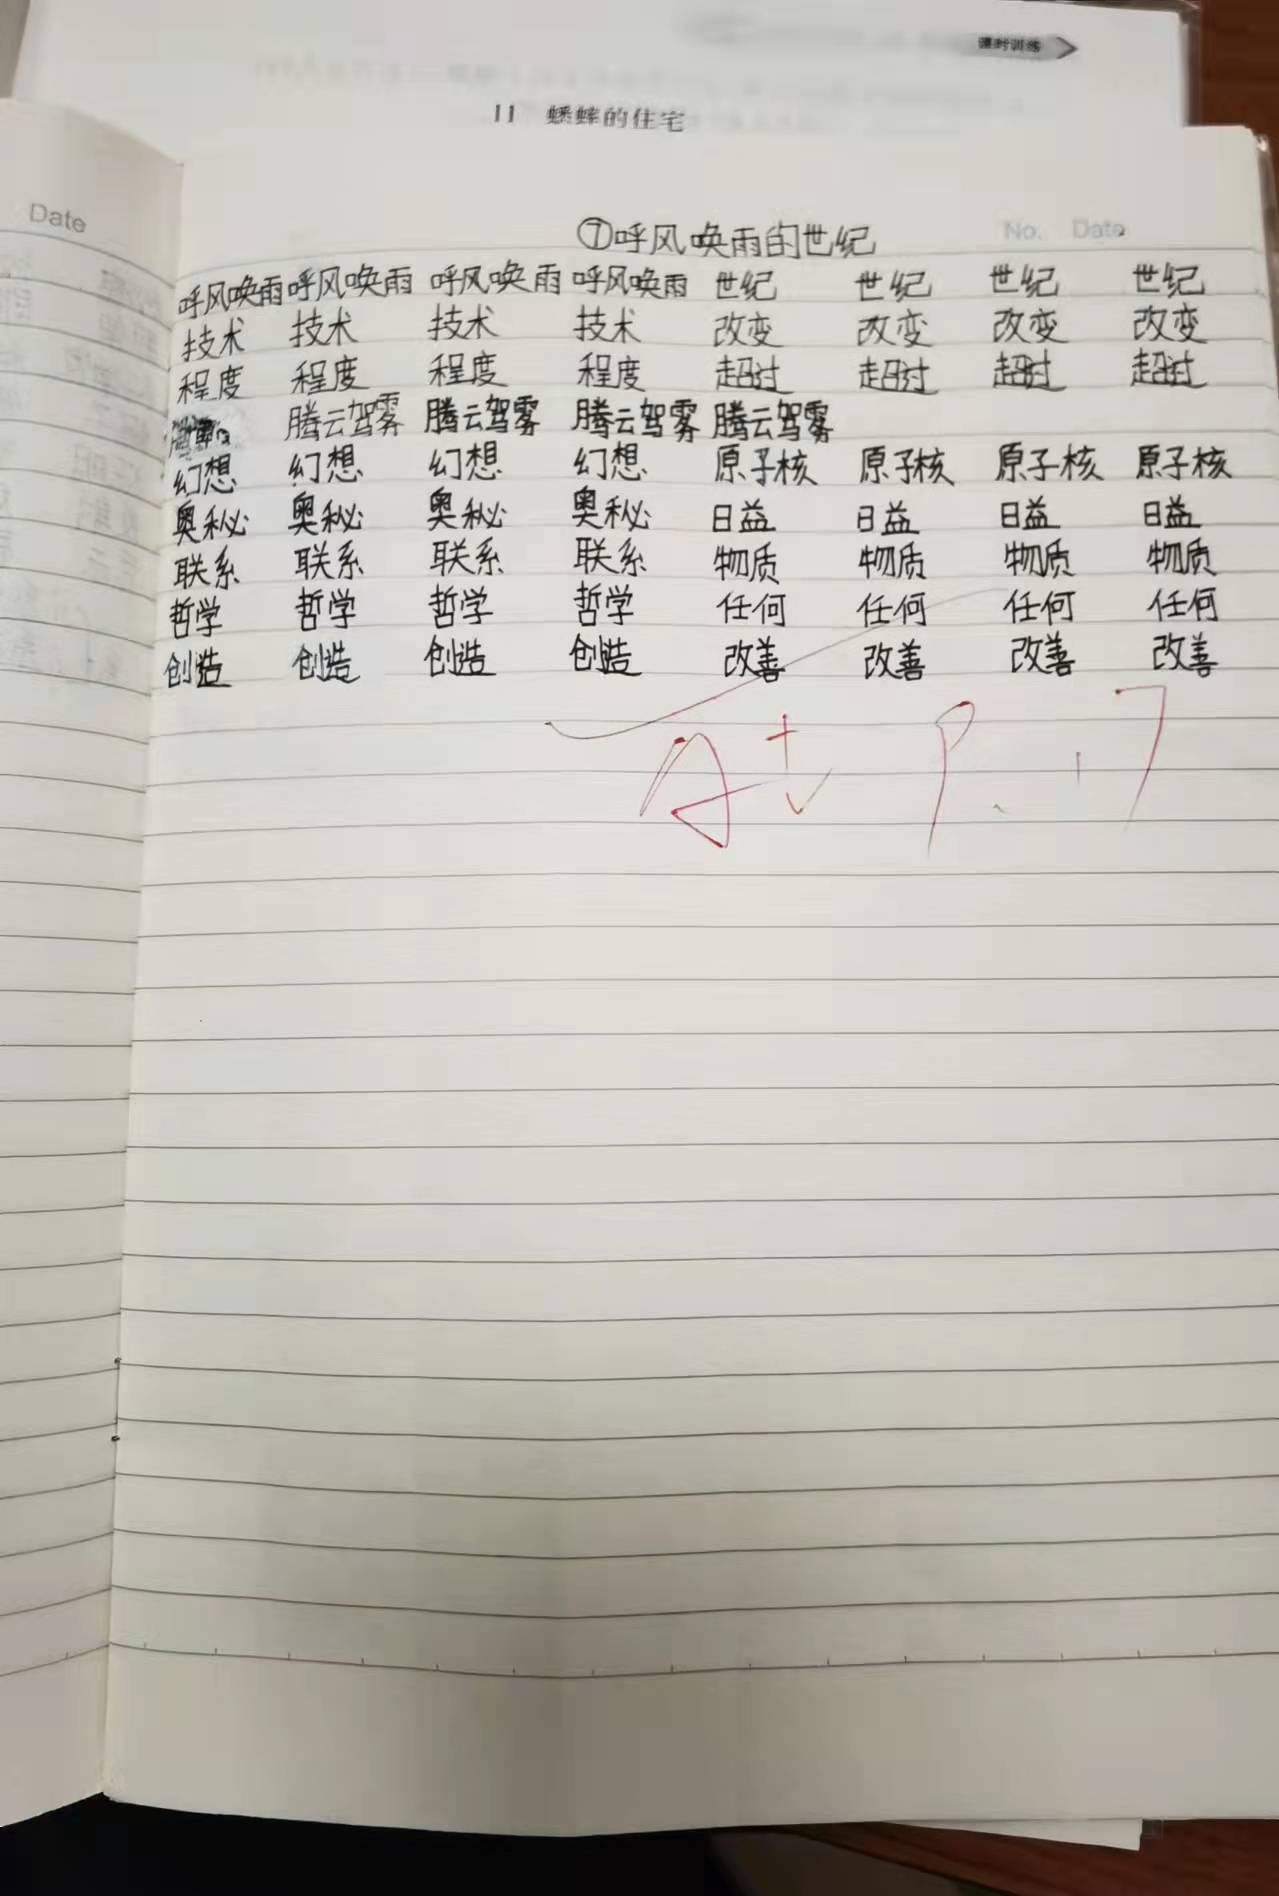 课时训练
11 蟋蟀的住宅
Date
No. Date
⑦呼风唤雨的世纪
呼风唤雨 呼风唤雨 呼风唤雨 呼风唤雨 世纪 世纪 世纪 世纪
技术 技术 技术 技术 改变 改变 改变 改变
程度 程度 程度 程度 超过 超过 超过 超过
腾云驾雾 腾云驾雾 腾云驾雾 腾云驾雾
幻想 幻想 幻想 幻想 原子核 原子核 原子核 原子核
奥秘 奥秘 奥秘 奥秘 日益 日益 日益 日益
联系 联系 联系 联系 物质 物质 物质 物质
哲学 哲学 哲学 哲学 任何 任何 任何 任何
创造 创造 创造 创造 改善 改善 改善 改善
A+